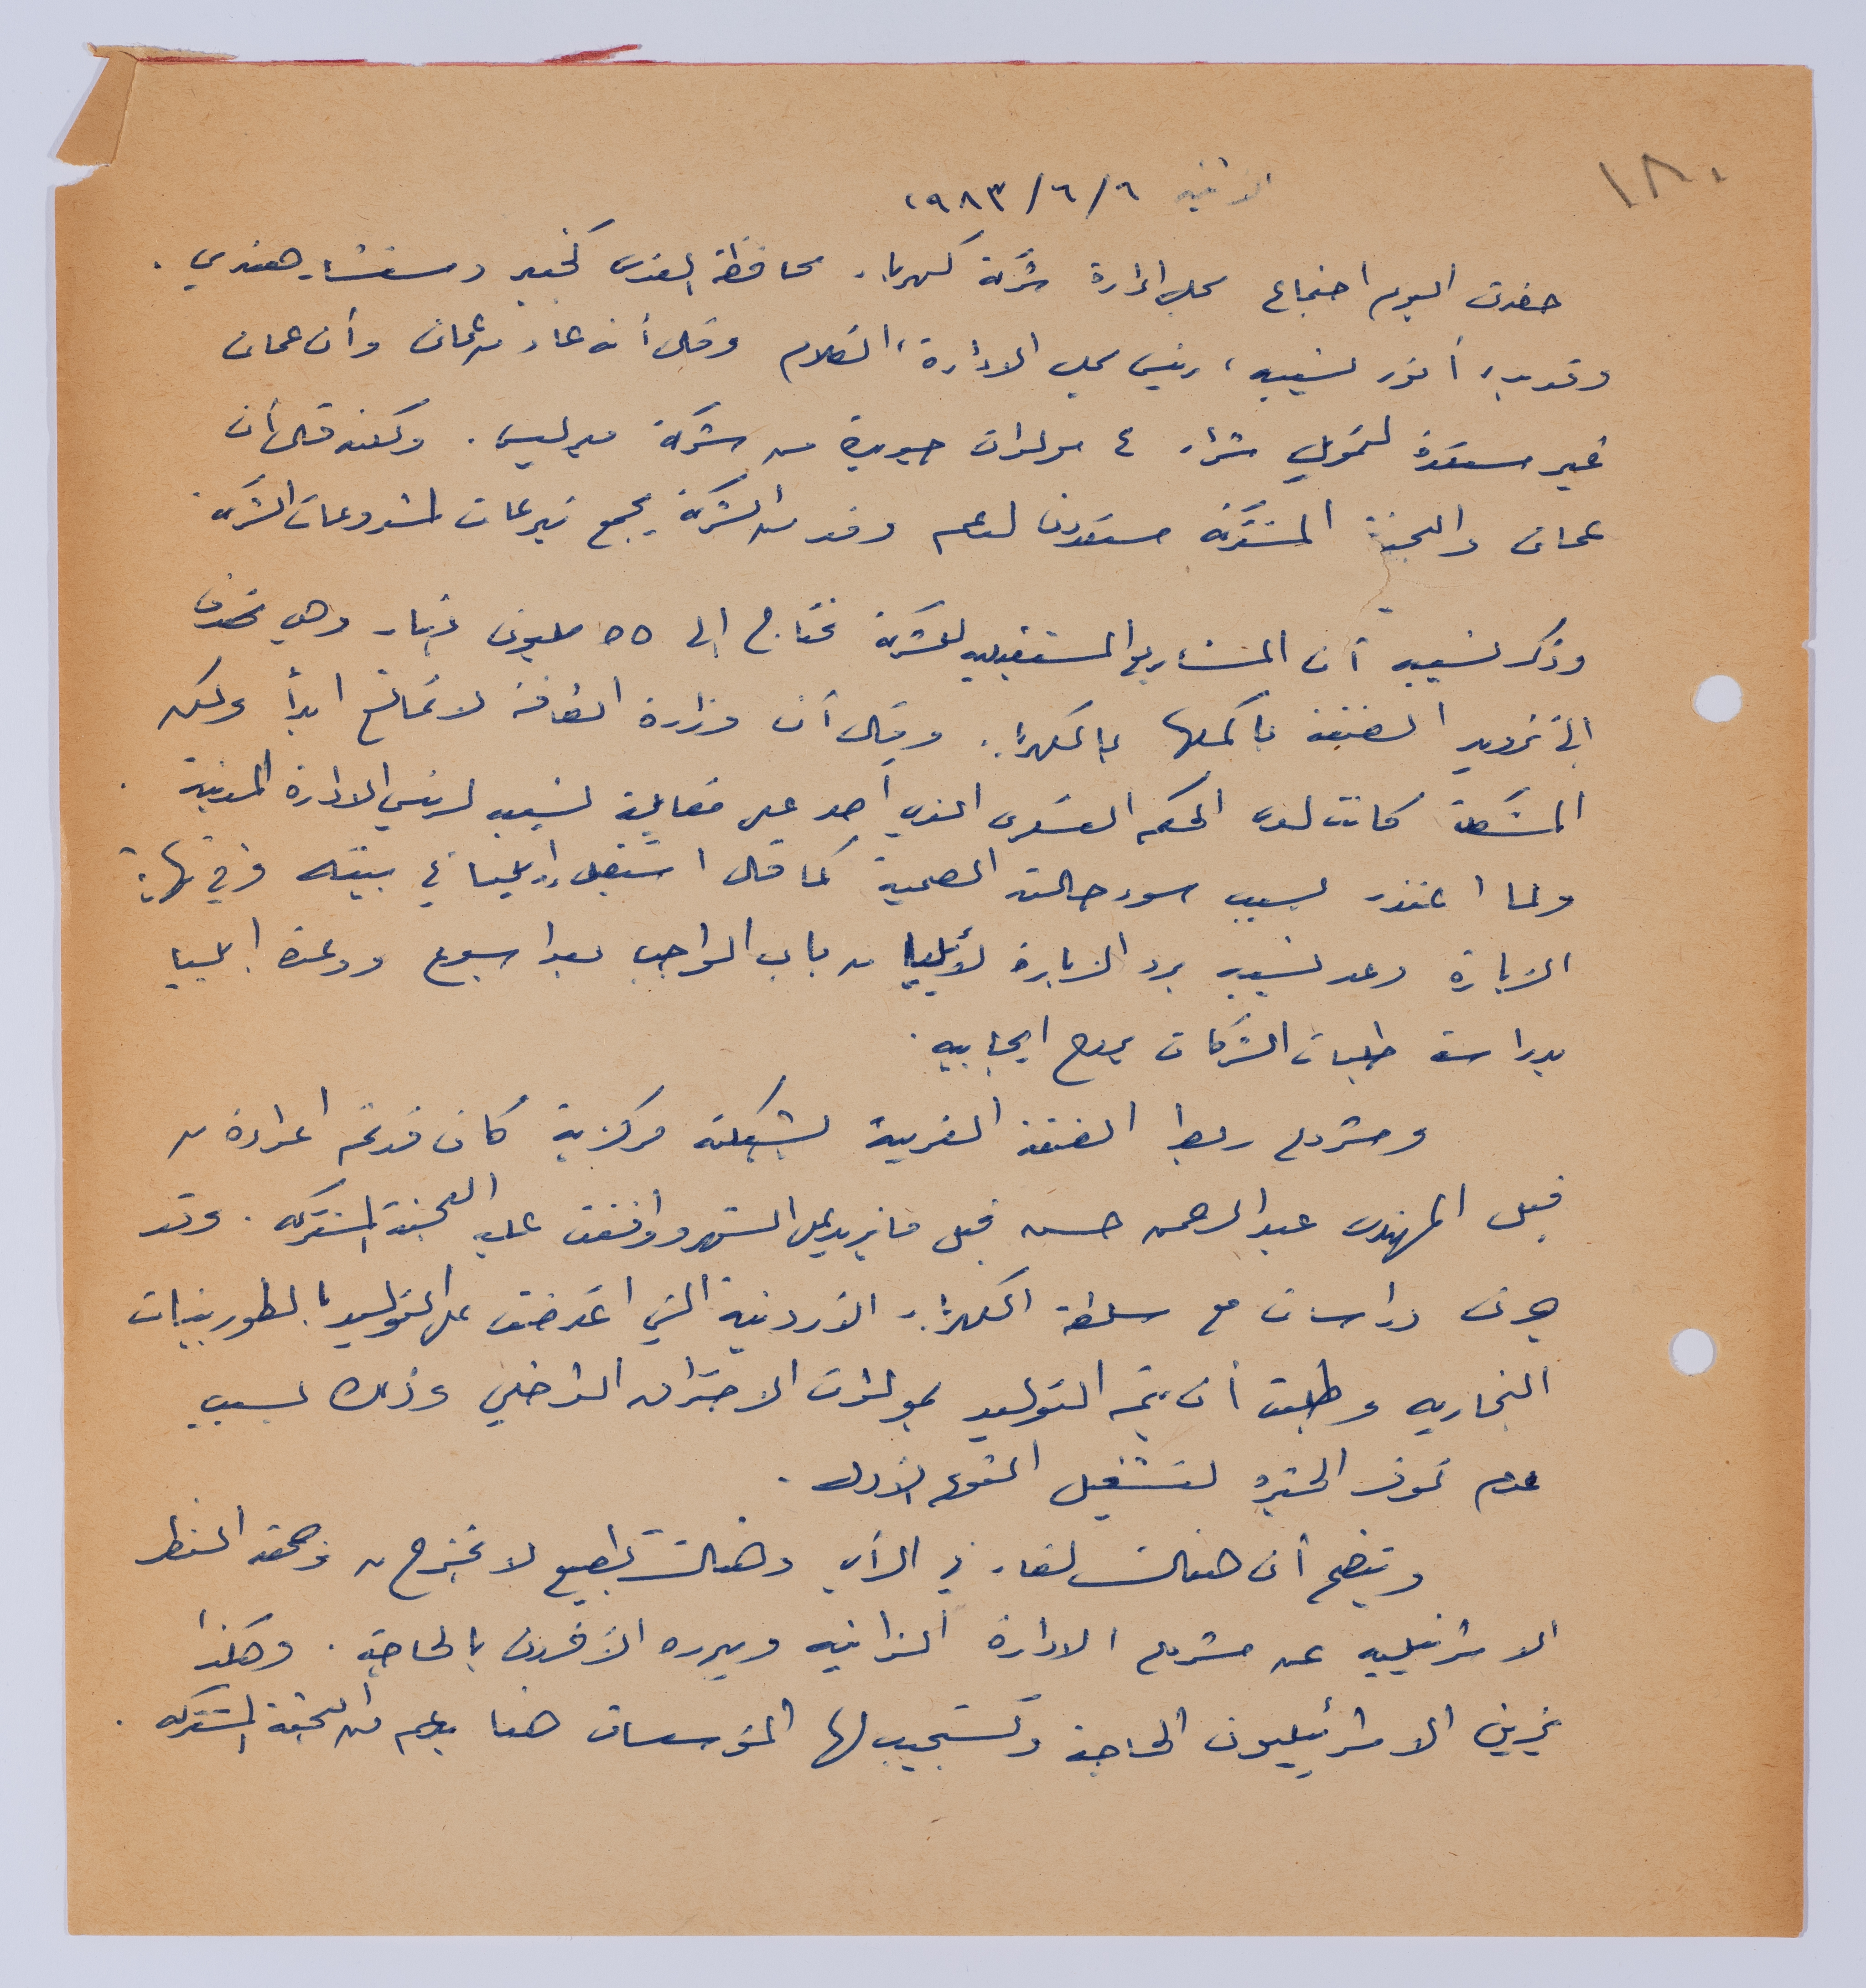 ١٨٠
الاثنين ٦/٦/١٩٨٣
حضرت اليوم اجتماع مجلس ادارة شركة كهرباء محافظة القدس كخبير ومستشار هندسي.
وقد بدأ أنور نسيبه، رئيس مجلس الادارة، الكلام وقال أنه عاد من عمان وأن عمان
غير مستعدة لتمويل شراء ٤ مولدات جديدة من شركة ميرليس. ولكنه قال أن
عمان واللجنة المشتركة مستعدون لدعم وفد من الشركة يجمع تبرعات لمشروعات الشركة
وذكر نسيبه أن المشاريع المستقبليه للشركة تحتاج الى ٥٥ مليون دينار وهي تهدف
الى تزويد الضفة بأكملها بالكهرباء. وقال أن وزارة الطاقة لا تمانع ابداً ولكن
المشكلة كانت لدى الحكم العسكري الذي أصر على مقابلة نسيبه لرئيس الادارة المدنية.
ولما اعتذر بسبب سوء حالته الصحية كما قال استقبل إيليا في بيته وفي نهاية
الزيارة وعد نسيبه برد الزيارة لأيليا من باب الواجب بعد اسبوع ووعده ايليا
بدراسة طلبات الشركات بروح ايجابيه.
ومشروع ربط الضفة الغربية بشبكة مركزية كان قد تم اعداده من
قبل المهندس عبد الرحمن حسن قبل ما يزيد على الشهر ووافقت عليه اللجنة المشتركه. وقد
جرت دراسات مع سلطة الكهرباء الاردنية التي اعترضت على التوليد بالطوربينات
البخاريه وطلبت أن يتم التوليد بمولدات الاحتراق الداخلي وذلك بسبب
عدم توفر الخبره لتشغيل النوع الاول.
ويتضح أن هنالك لقاء في الرأي وهنالك تطبيع لا يخرج من وجهة النظر
الاسرائيليه عن مشروع الادارة الذاتيه ويبرره الآخرون بالحاجة. وهكذا
يزين الاسرائيليون الحاجة وتستجيب لها المؤسسات هنا بدعم من اللجنة المشتركه.